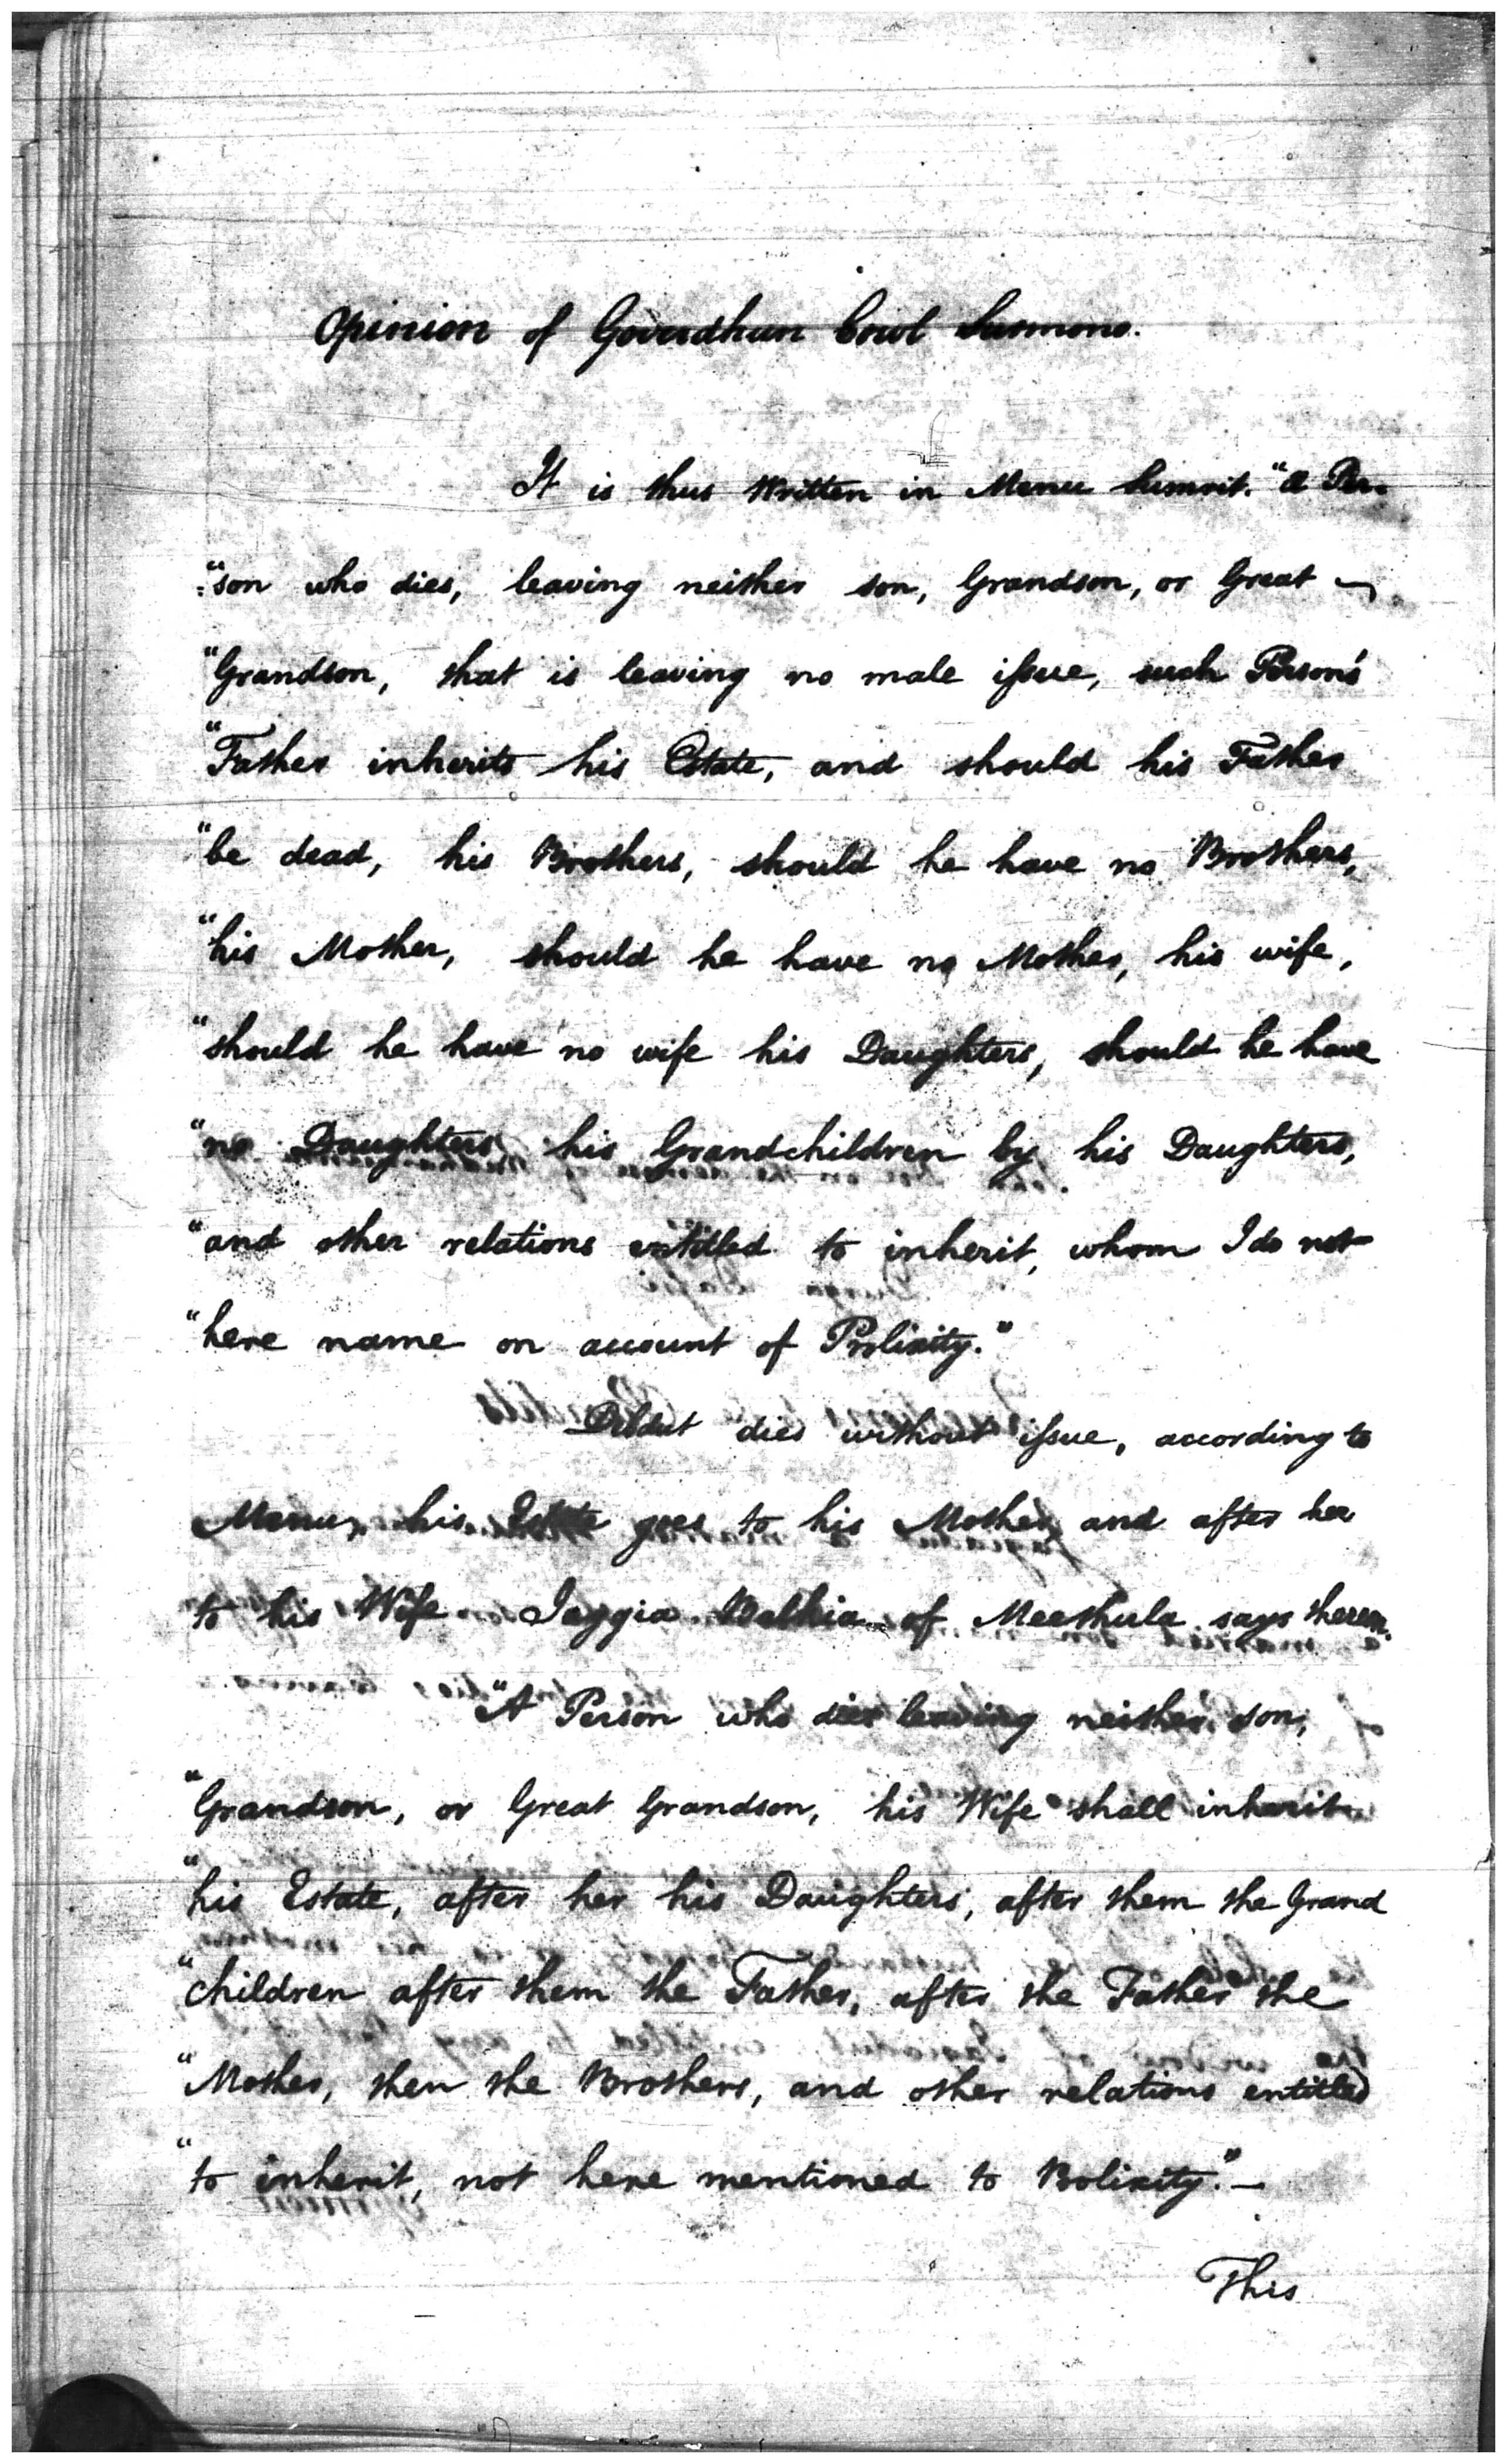 Opinion of Goverdhun Cowl Surmono.
It is thus Written in Menu Sumrit. "A Per-
":son who dies, leaving neither son, Grandson, or Great
"Grandson, that is leaving no male issue, such Person's
"Father inherits his Estate, and should his Father
"be dead, his Brothers, should he have no Brothers,
"his Mother, should he have no Mother, his wife,
"should he have no wife his Daughters, should he have
"no Daughters his Grandchildren by his Daughters,
"and other relations entitled to inherit, whom I do not
"here name on account of Prolixity."
dies without issue, according to
Menu, his Estate goes to his Mother and after her
to his Wife Jaggia Walkia of Meethula says
"A Person who dies leaving neither son,
"Grandson, or Great Grandson, his Wife shall inherit
"his Estate, after her his Daughters, after them the Grand
"children after them the Father, after the Father the
"Mother, then the Brothers, and other relations entitled
"to inherit, not here mentioned to Prolixity."—
This